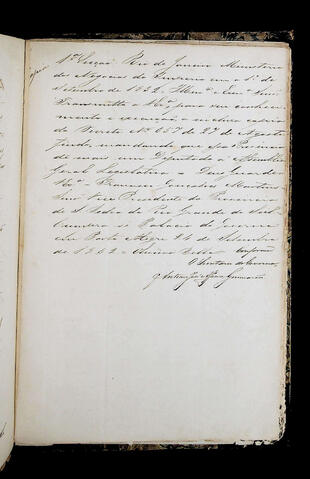 Copia
1ª Secção Rio de Janeiro Ministerio
dos Negocios do Imperio em o 1º de
Setembro de 1852. Illmo. e Exmo. Senr.
Transmitto a V. Exª para seu conheci-
mento e execução a inclusa copia
do Decreto Nº 657 de 27 de Agosto
findo, mandando que
de mais um Deputado a Assemblea
Geral Legislativa. Deos Guarde
V. Exª - Francisco Gonçalves Martins
Senr. Vice Presidente da Provincia
de S. Pedro do Rio Grande do Sul
Cumpra-se Palacio do Governo
em Porto Alegre 24 de Setembro
de 1852 - Conforme
O Secretario do Governo